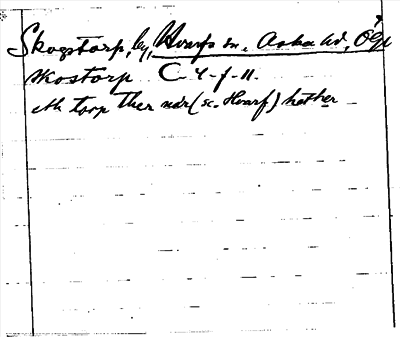 Skogstorp, by, Hvarfs sn, Aska hd, Ögl
skostorp C 4-f-11.
eth torp ther när (sc. Hvarf) hether